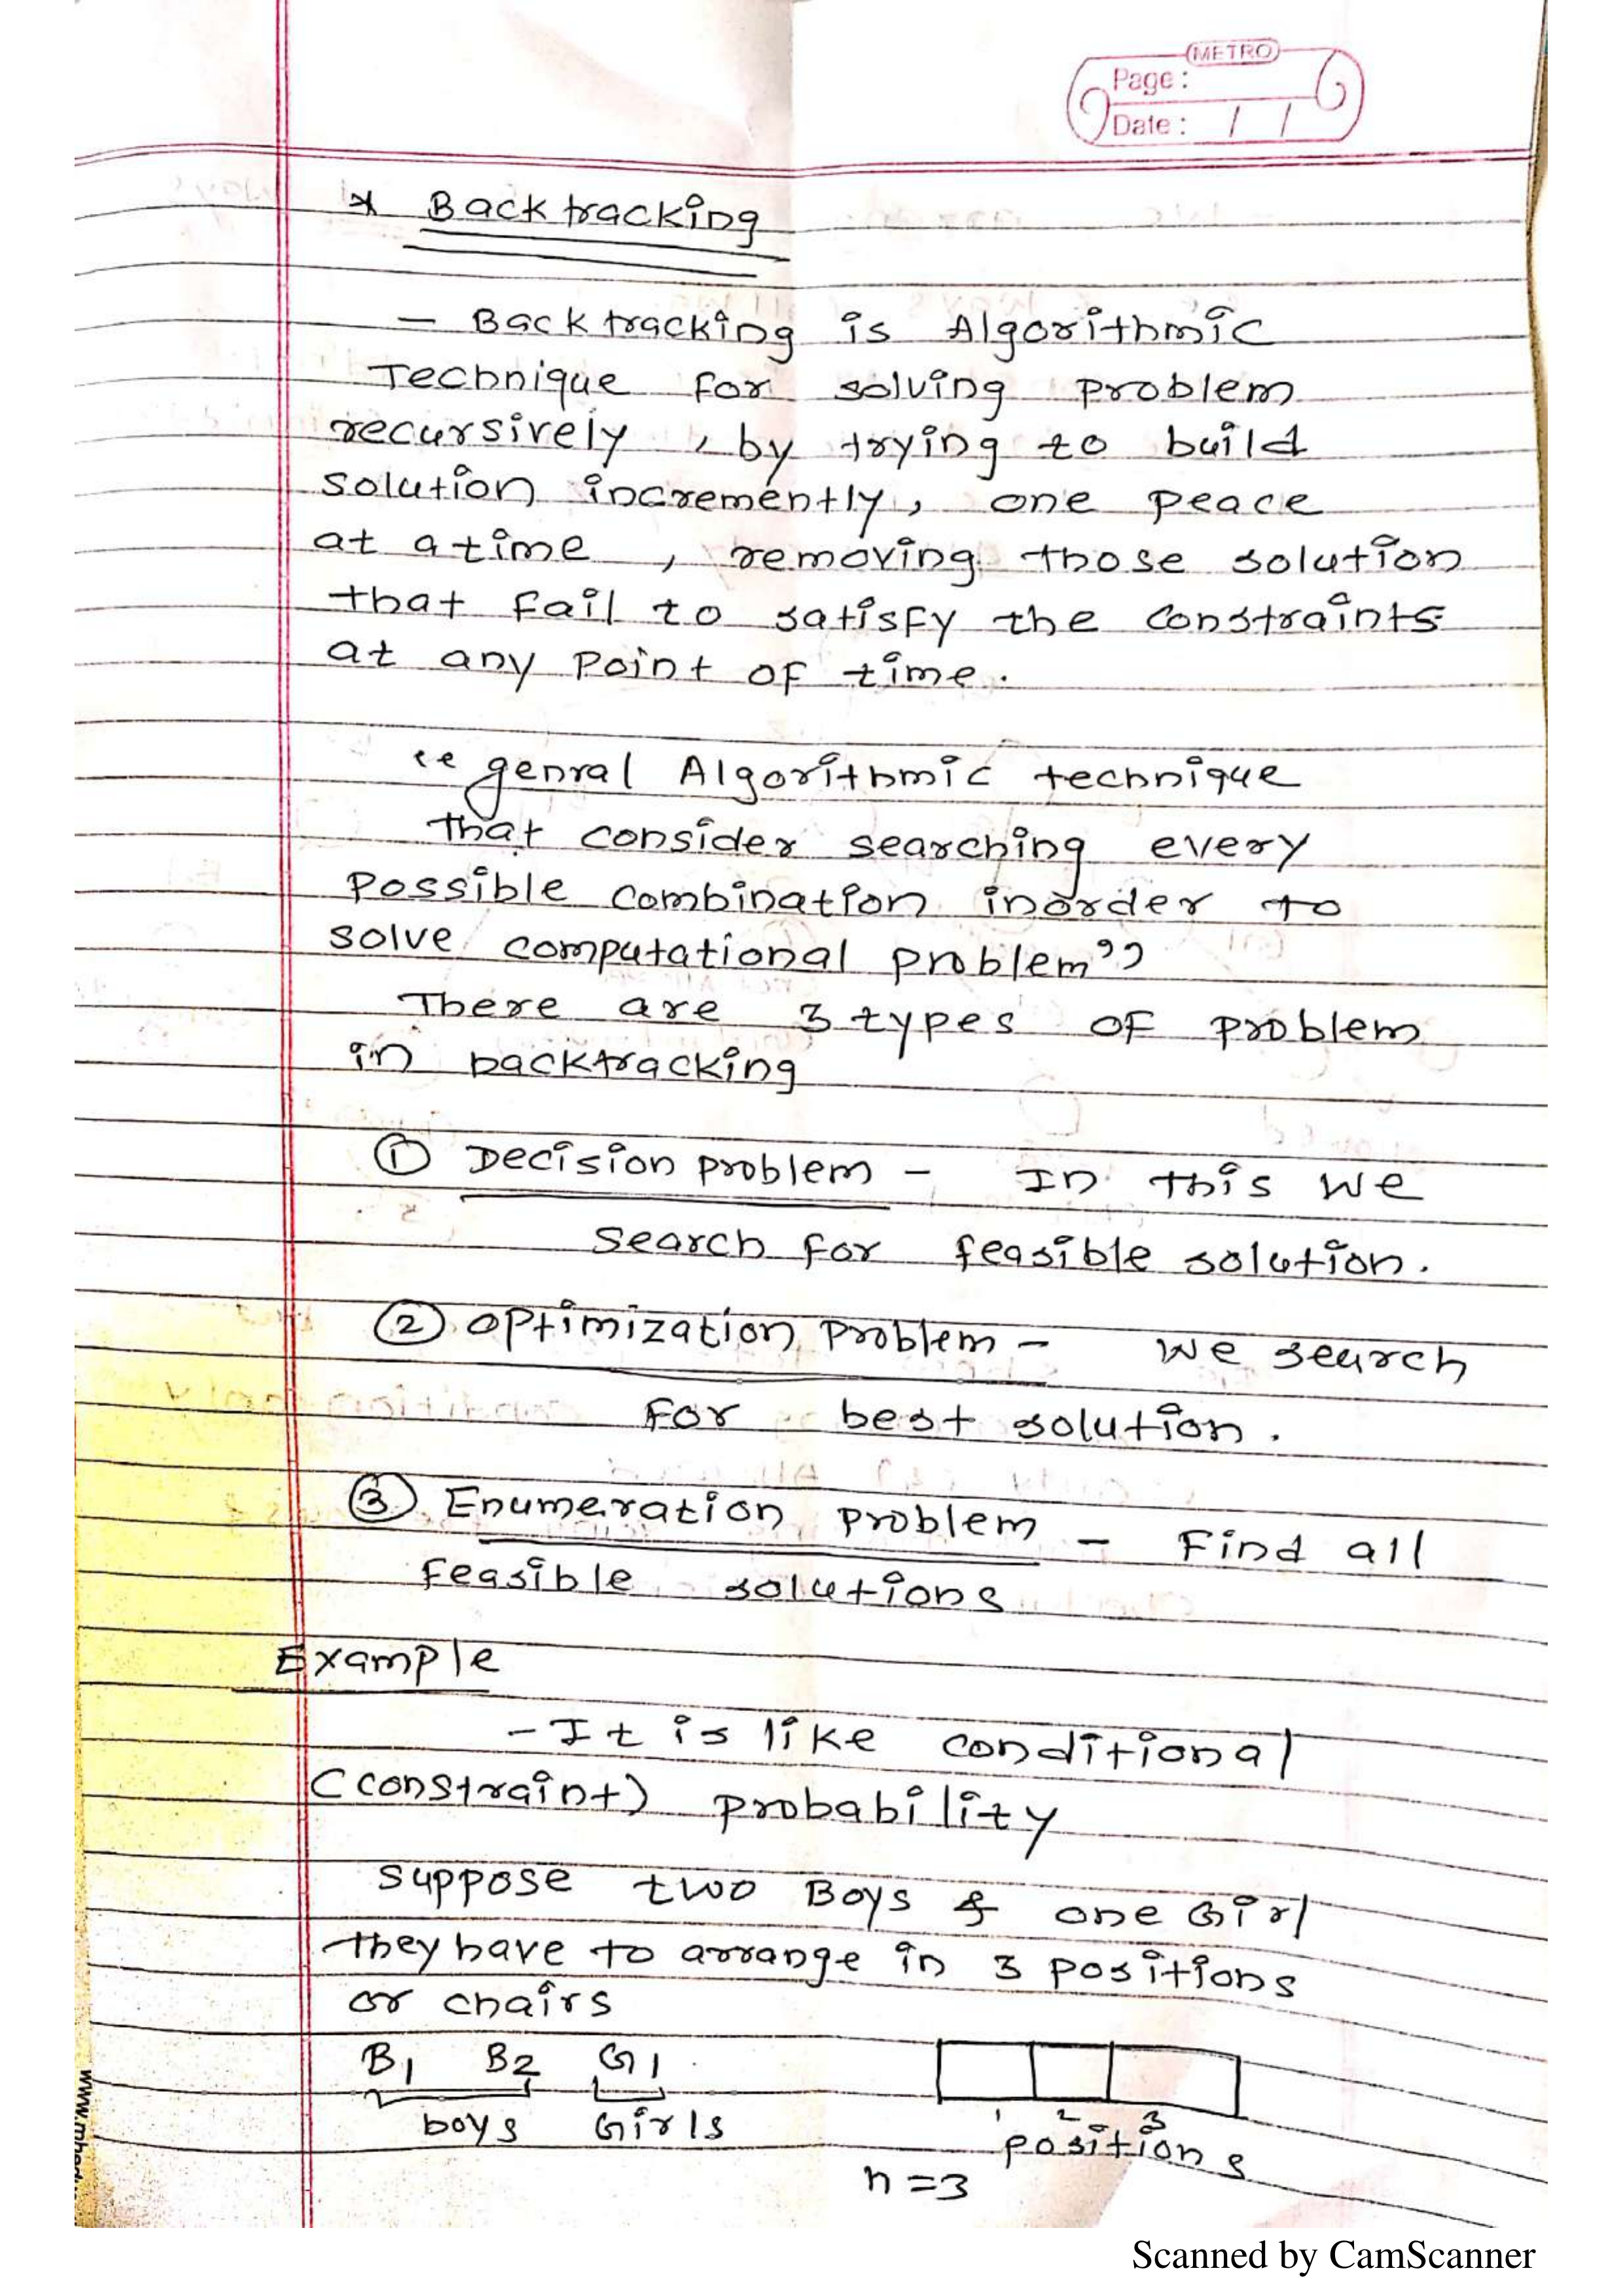 METRO
Page :
Date : / /
* Backtracking
- Backtracking is Algorithmic
Technique for solving problem
recursively , by trying to build
solution incremently, one peace
at a time , removing those solution
that fail to satisfy the constraints
at any point of time .
"genral Algorithmic technique
that consider searching every
possible combination inorder to
solve computational problem"
There are 3 types of problem
in backtracking
① Decision problem - In this we
search for feasible solution.
② Optimization problem - we search
for best solution .
③ Enumeration problem - Find all
feasible solutions
Example
- It is like conditional
(constraint) probability
suppose two Boys & one Girl
they have to arrange in 3 positions
or chairs
B1 B2 G1
boys Girls
1 2 3
positions
n = 3
Scanned by CamScanner